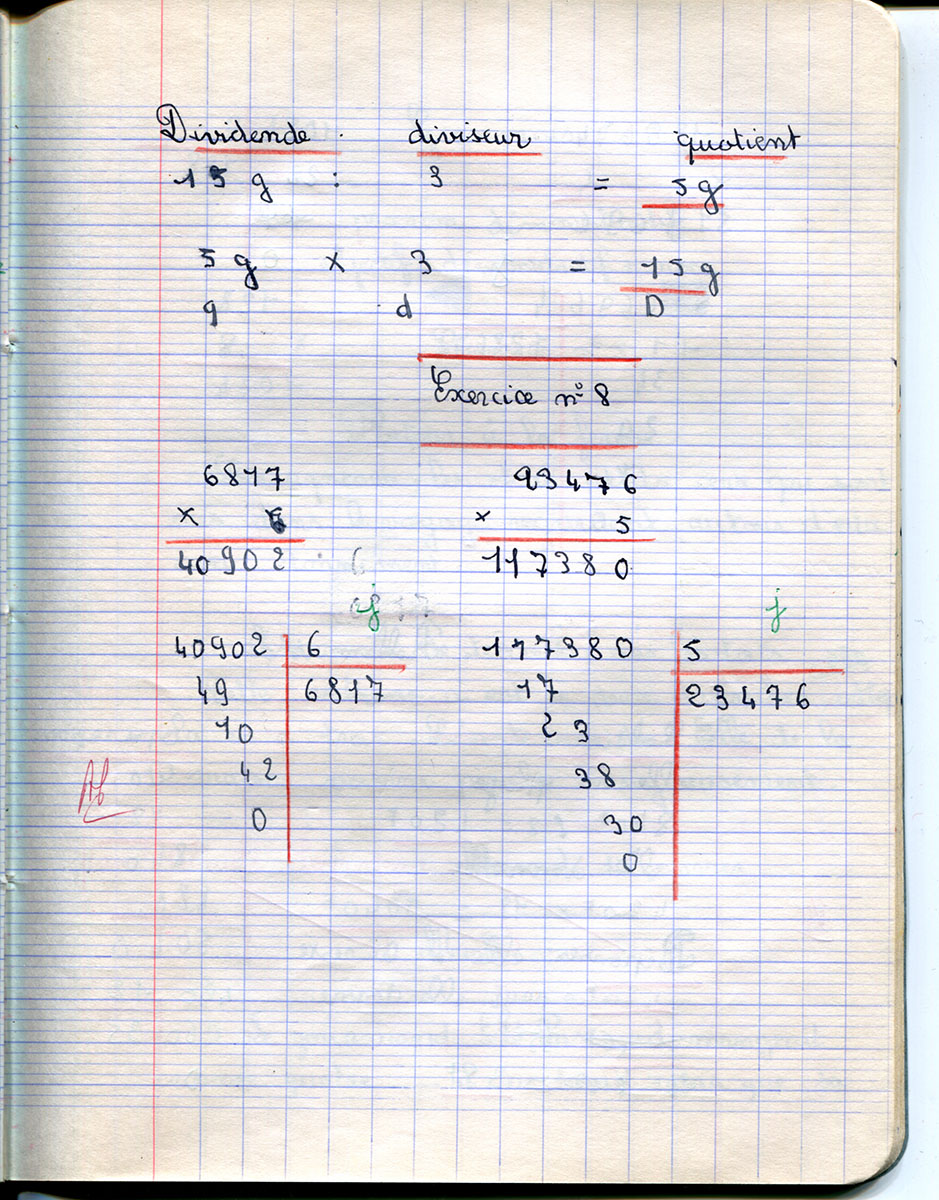 Dividende diviseur quotient
15 g : 3 = 5 g
5 g × 3 = 15 g
q d D
Exercice n° 8
6817 23476
× 6 × 5
40902 117380
j j
40902 6 117380 5
49 6817 17 23476
10 23
42 38
0 30
0